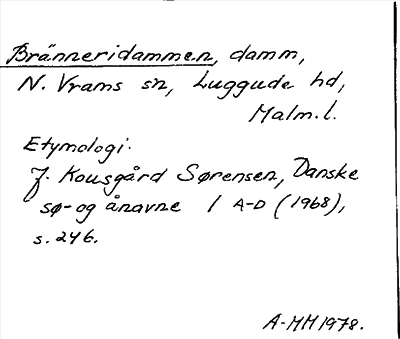 Bränneridammen, damm,
N. Vrams sn, Luggude hd,
Malm.l.
Etymologi.
J. Kousgård Sørensen, Danske
sø- og ånavne I A-D (1968),
s. 246.
A-MM 1978.